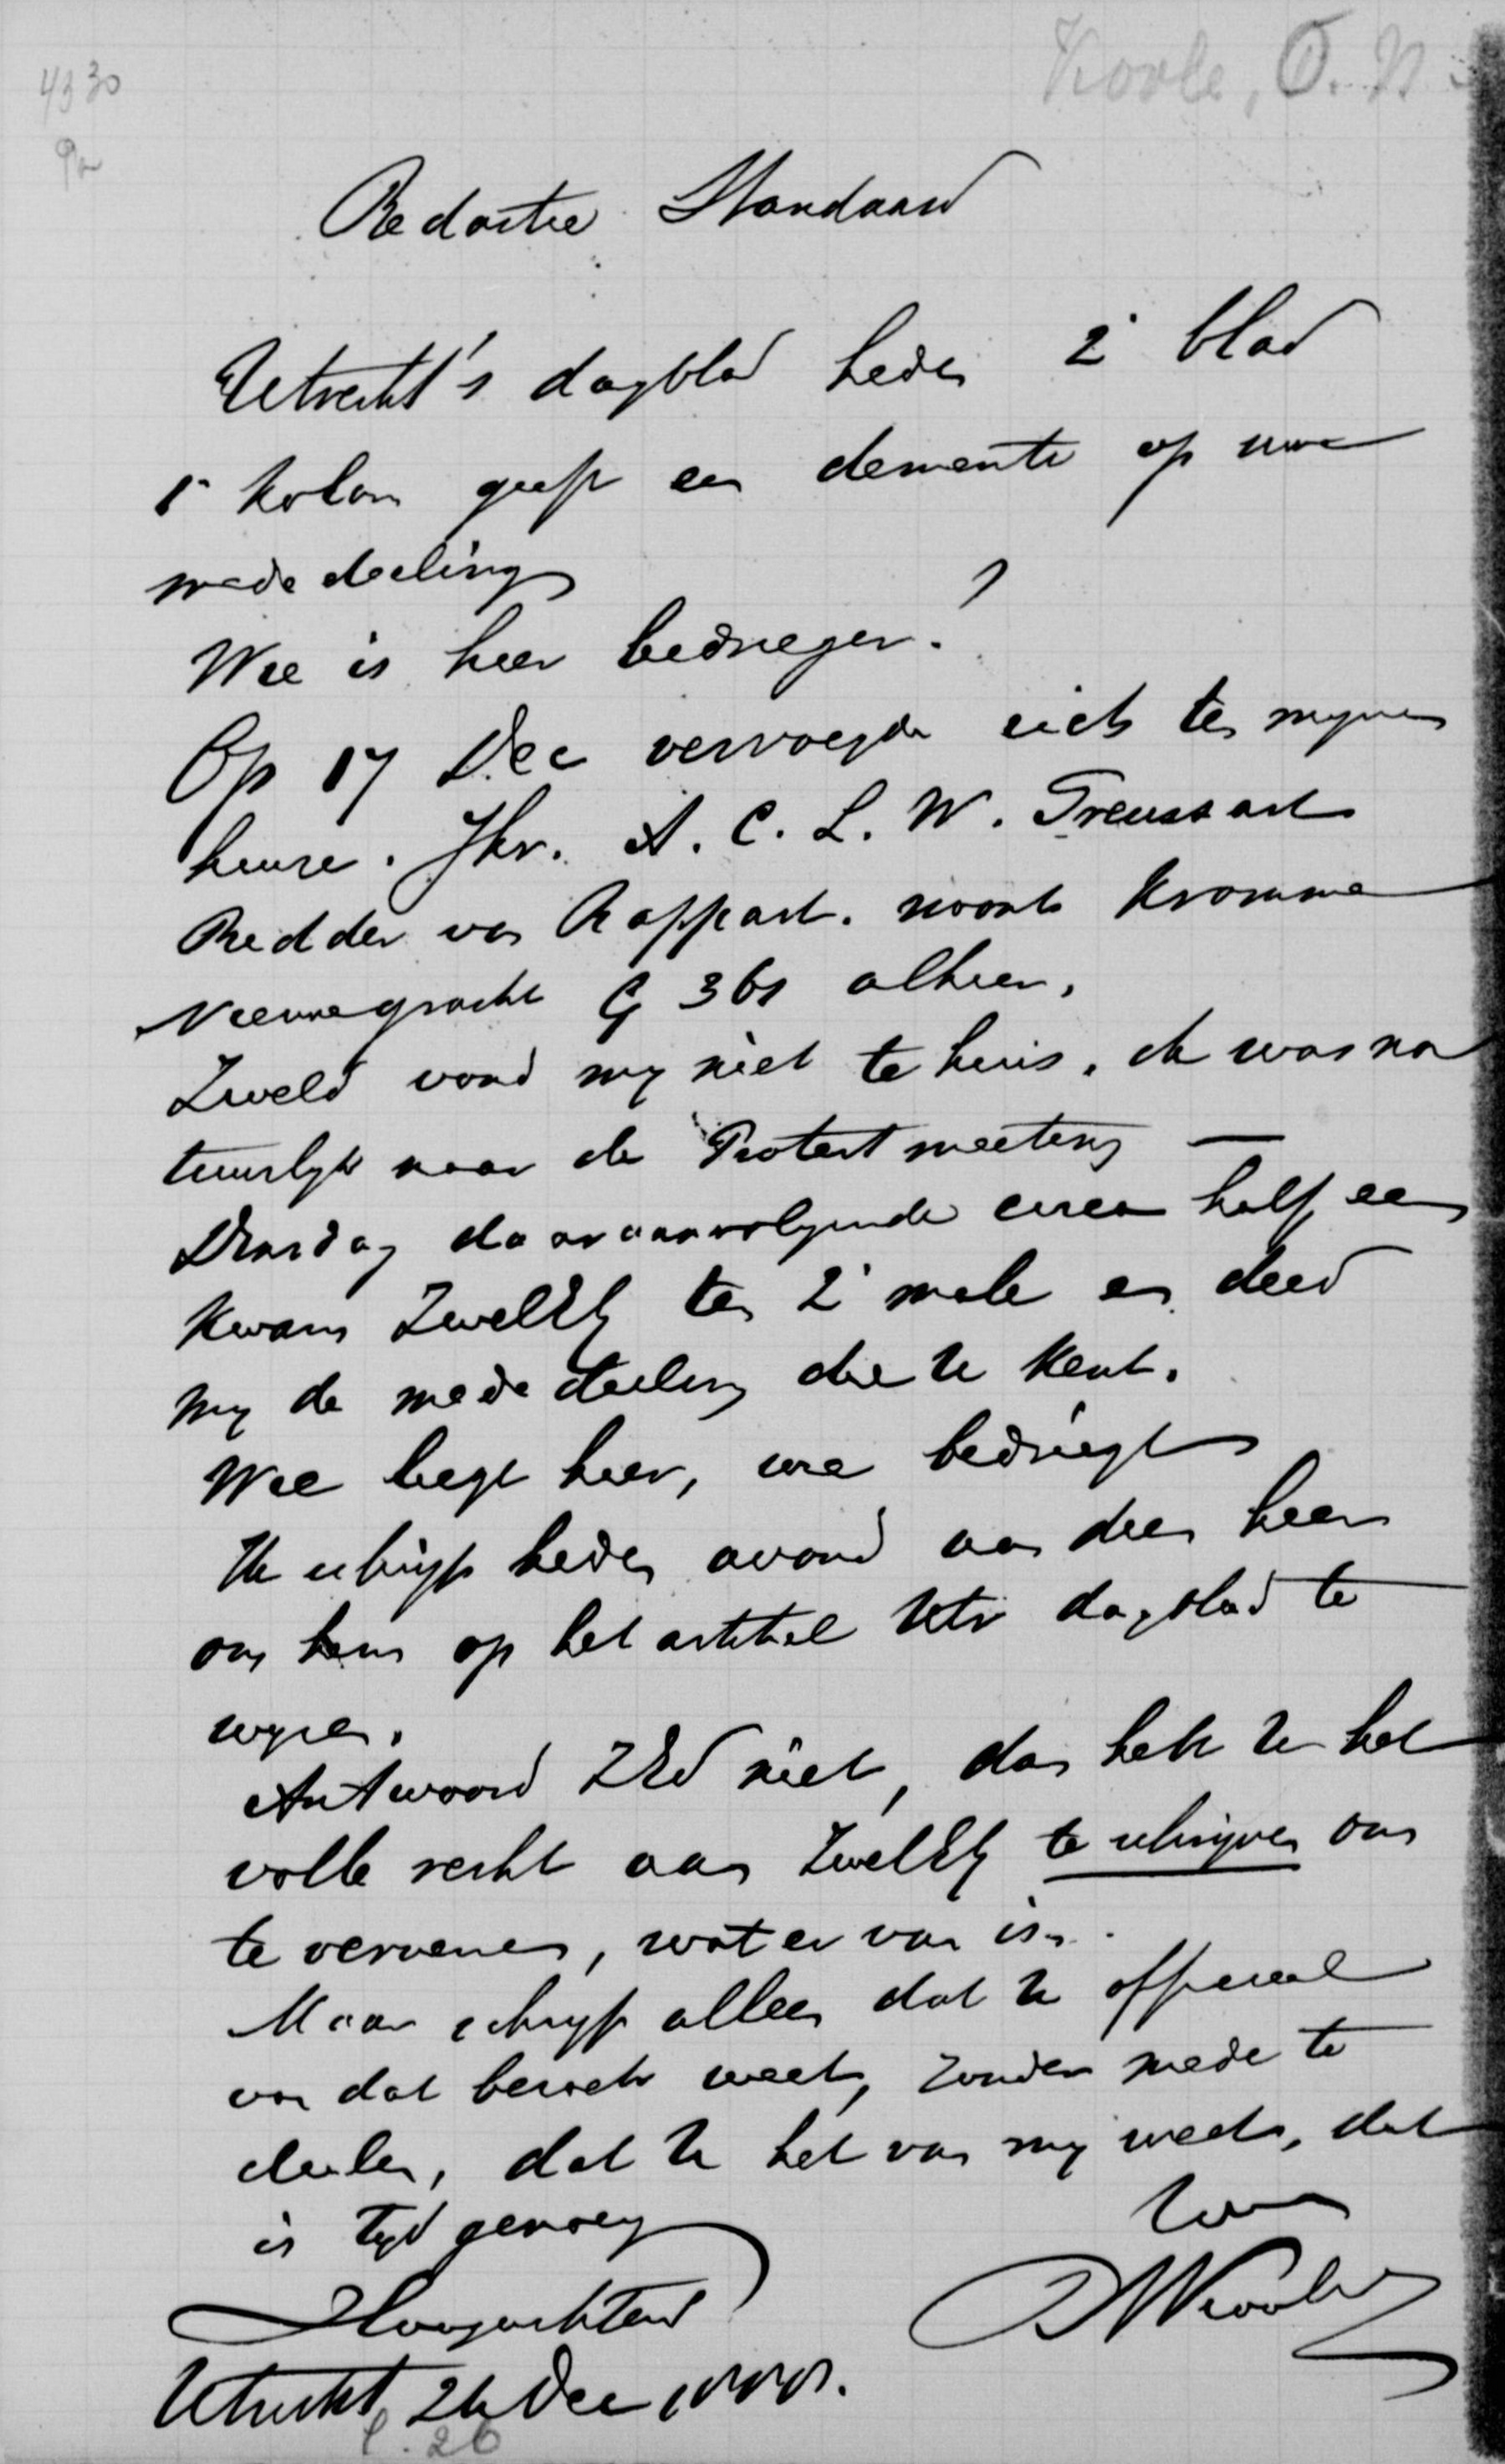 4330
Koole, O. N.
Redactie Standaard
Utrecht's dagblad heden 2e blad
1e kolom geeft een dementi op uwe
mededeeling
Wie is hier bedrieger?
Op 17 Dec vervoegde zich ten mijnen
huize. Jhr. A. C. L. W. Treussart
Ridder van Rappart. woont Kromme
Nieuwegracht G 361 alhier,
Zweld vond mij niet te huis, ik was na
tuurlijk naar de Protest meeting —
Dinsdag daaraanvolgende circa half een
kwam ZwelEG ten 2e male en deed
mij de mededeeling die U kent.
Wie liegt hier, wie bedriegt
Ik schrijf heden avond aan dien heer
om hem op het artikel Utr dagblad te
wijzen.
Antwoord ZEd niet, dan hebt U het
volle recht aan ZwelEG te schrijven om
te vernemen, wat er van is.
Maar schrijf alleen dat U officieel
van dat bezoek weet, zonder mede te
deelen, dat U het van mij weet, dat
is tijd genoeg
Hoogachtend
Utrecht, 26 Dec
26